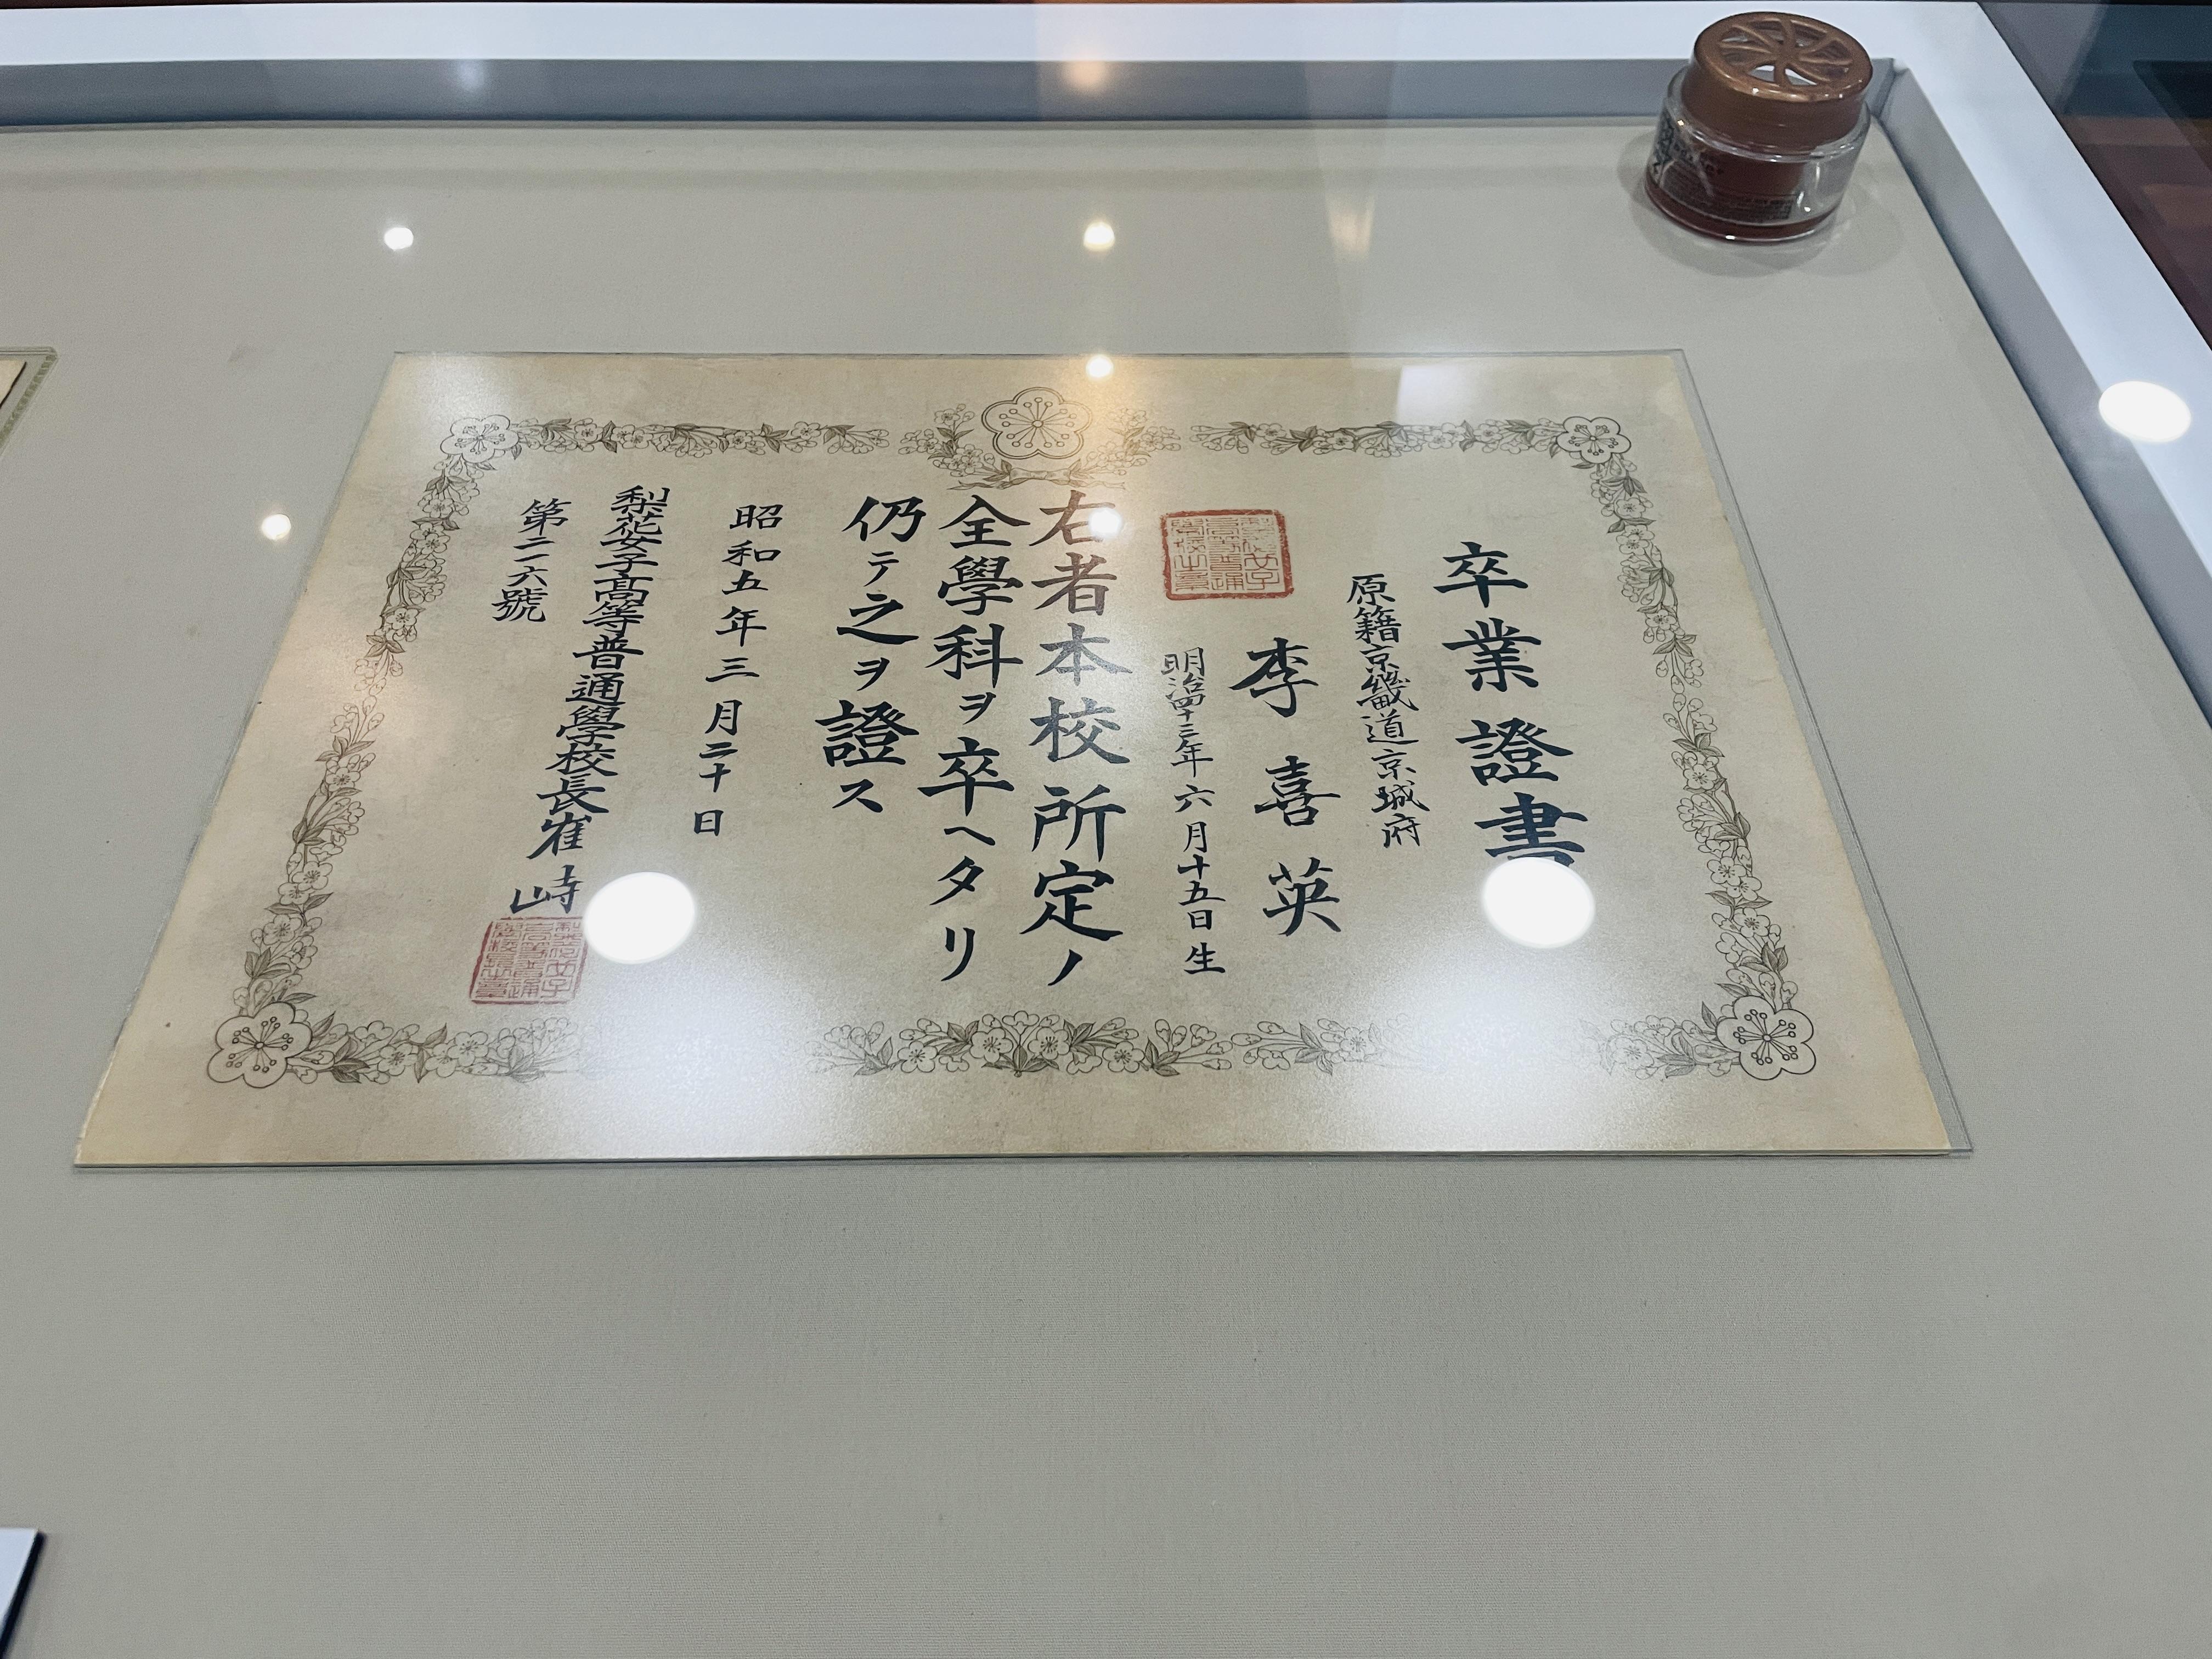 卒業證書
原籍京畿道京城府
李喜英
明治四十三年六月十五日生
右者本校所定ノ
全學科ヲ卒ヘタリ
仍テ之ヲ證ス
昭和五年三月二十日
梨花女子高等普通學校長崔峙
第二一六號